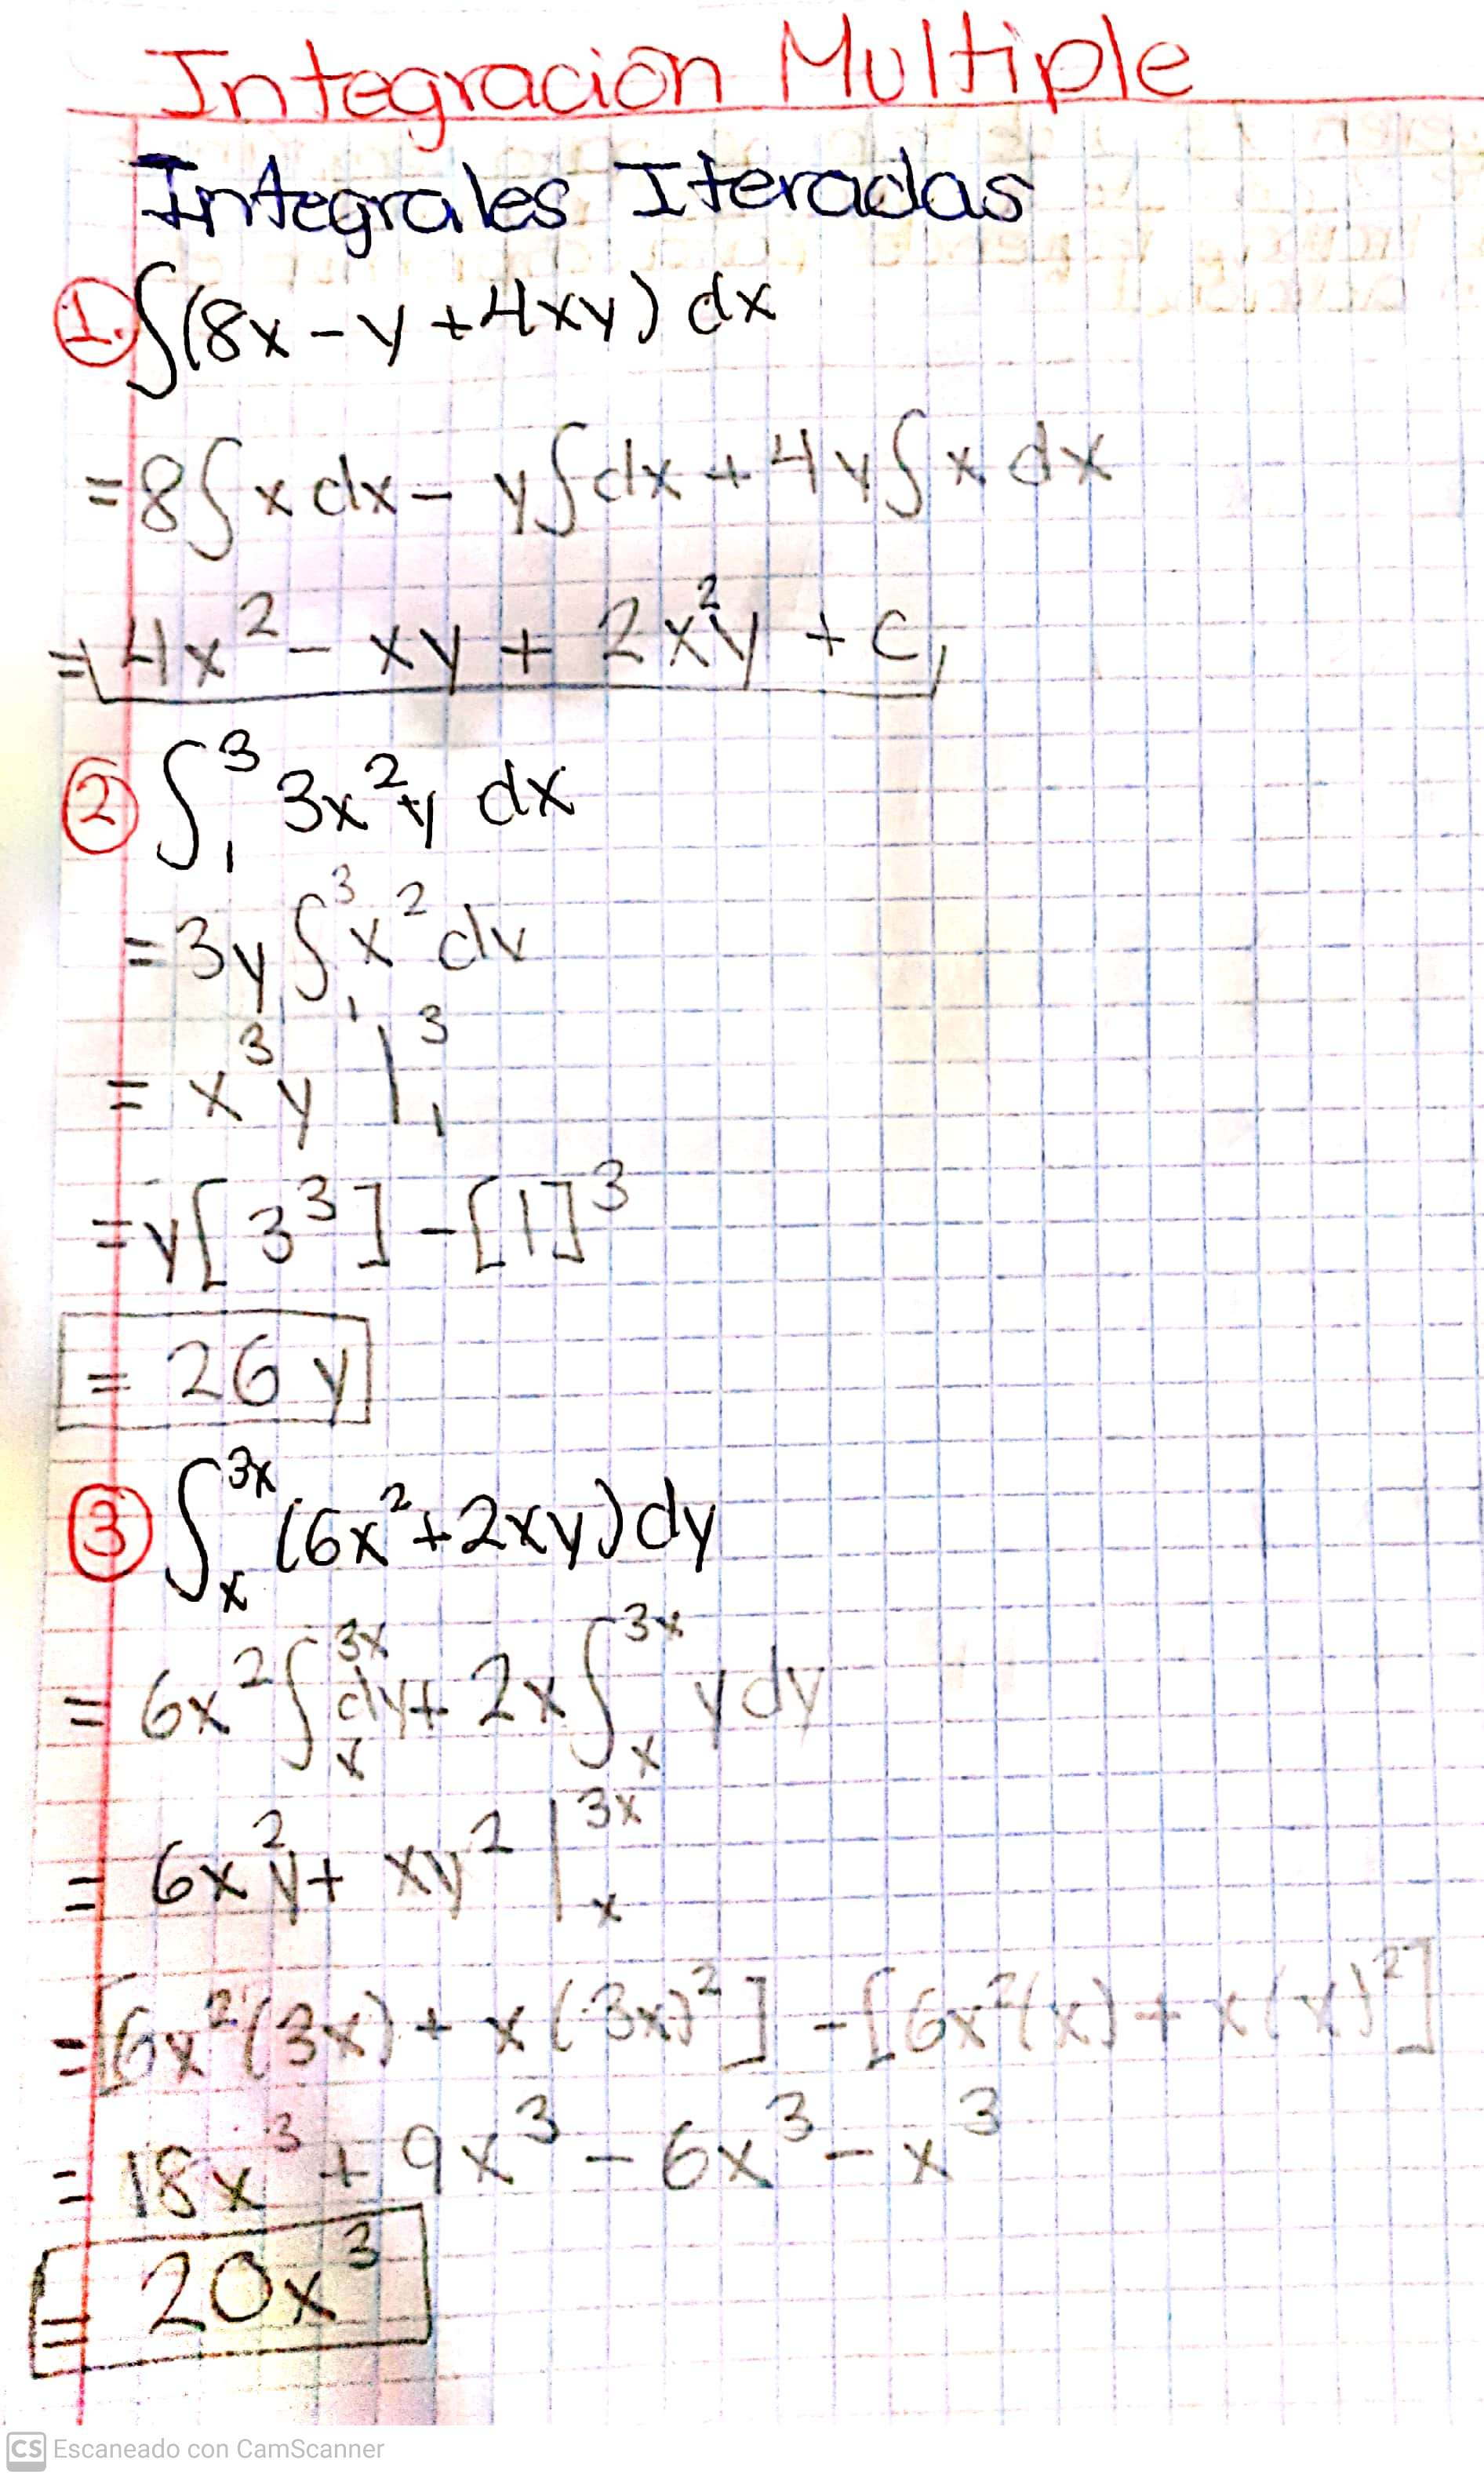 Integración Multiple
Integrales Iteradas
1. ∫(8x - y + 4xy) dx
= 8∫x dx - y∫dx + 4y∫x dx
= 4x² - xy + 2x²y + C,
2 ∫₁³ 3x²y dx
= 3y ∫₁³ x² dx
= x³y |₁³
= y[3³] - [1]³
= 26y
3 ∫ₓ³ˣ (6x² + 2xy) dy
= 6x² ∫ₓ³ˣ dy + 2x ∫ₓ³ˣ y dy
= 6x²y + xy² |ₓ³ˣ
= [6x²(3x) + x(3x)²] - [6x²(x) + x(x)²]
= 18x³ + 9x³ - 6x³ - x³
= 20x³
CS Escaneado con CamScanner